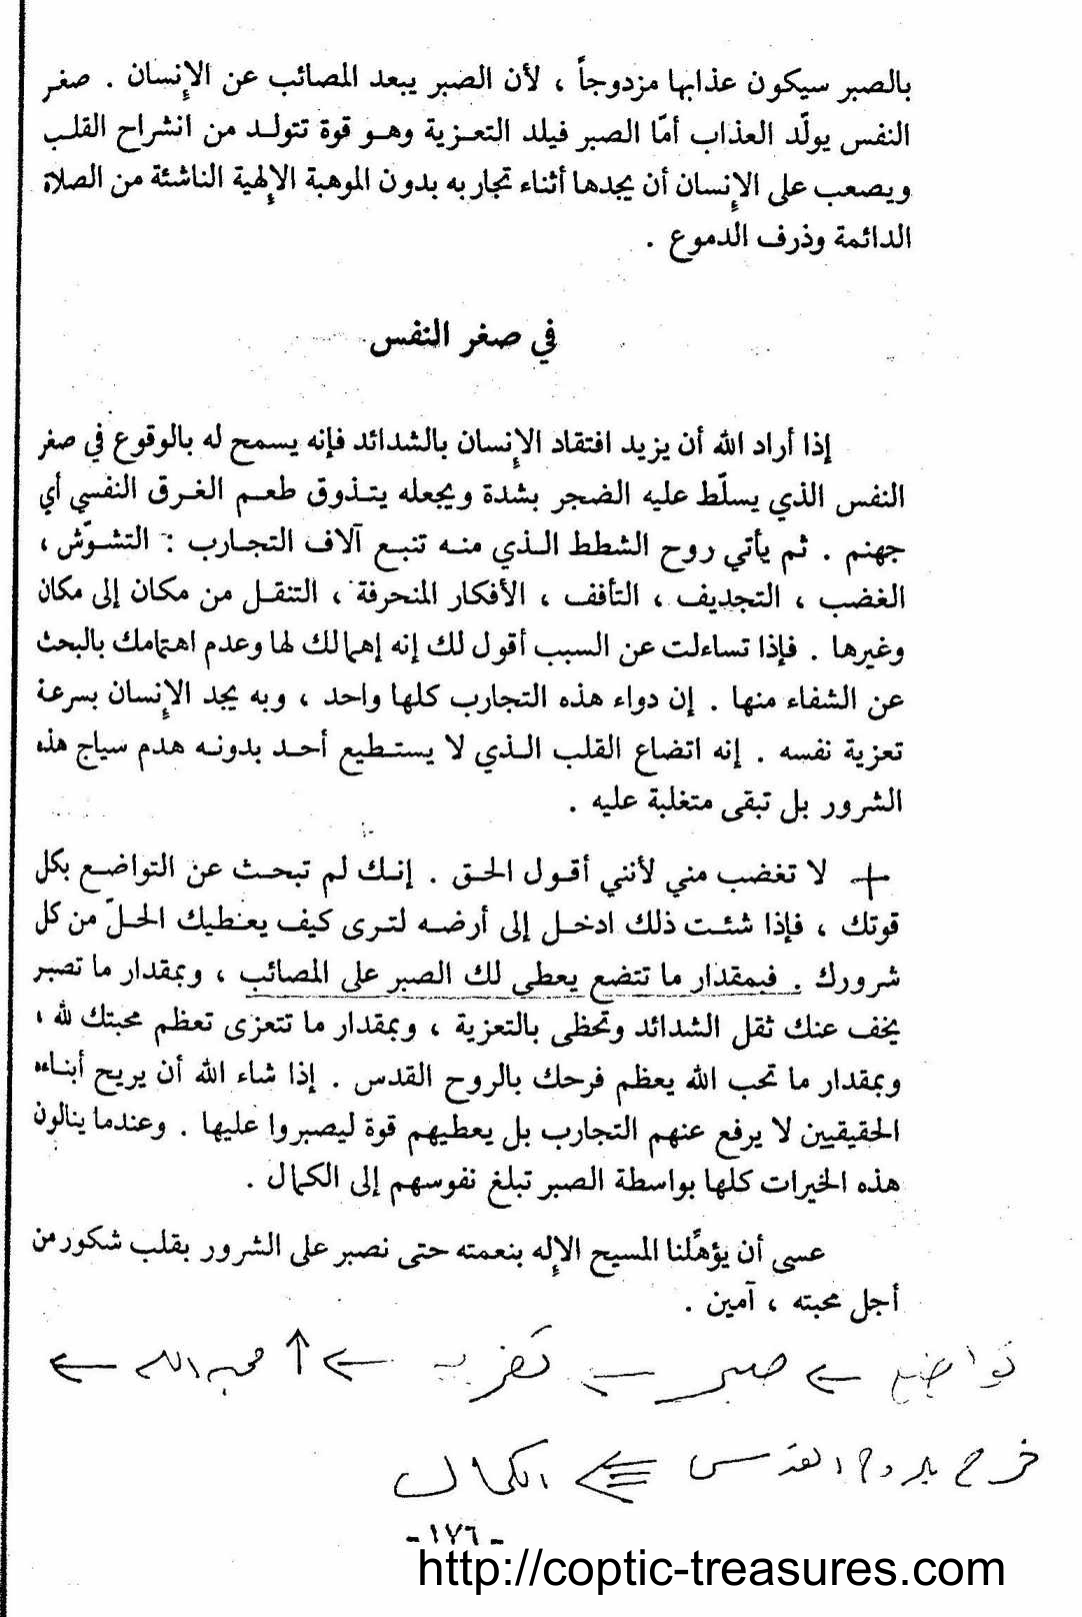 بالصبر سيكون عذابها مزدوجاً ، لأن الصبر يبعد المصائب عن الإنسان . صغر
النفس يولّد العذاب أمّا الصبر فيلد التعزية وهو قوة تتولد من انشراح القلب
ويصعب على الإنسان أن يجدها أثناء تجاربه بدون الموهبة الإلهية الناشئة من الصلاة
الدائمة وذرف الدموع .
في صغر النفس
إذا أراد الله أن يزيد افتقاد الإنسان بالشدائد فإنه يسمح له بالوقوع في صغر
النفس الذي يسلّط عليه الضجر بشدة ويجعله يتذوق طعم الغرق النفسي أي
جهنم . ثم يأتي روح الشطط الذي منه تنبع آلاف التجارب : التشوّش ،
الغضب ، التجديف ، التأفف ، الأفكار المنحرفة ، التنقل من مكان إلى مكان
وغيرها . فإذا تساءلت عن السبب أقول لك إنه إهمالك لها وعدم اهتمامك بالبحث
عن الشفاء منها . إن دواء هذه التجارب كلها واحد ، وبه يجد الإنسان بسرعة
تعزية نفسه . إنه اتضاع القلب الذي لا يستطيع أحد بدونه هدم سياج هذه
الشرور بل تبقى متغلبة عليه .
+ لا تغضب مني لأنني أقول الحق . إنك لم تبحث عن التواضع بكل
قوتك ، فإذا شئت ذلك ادخل إلى أرضه لترى كيف يعطيك الحلّ من كل
شرورك . فبمقدار ما تتضع يعطى لك الصبر على المصائب ، وبمقدار ما تصبر
يخف عنك ثقل الشدائد وتحظى بالتعزية ، وبمقدار ما تتعزى تعظم محبتك لله ،
وبمقدار ما تحب الله يعظم فرحك بالروح القدس . إذا شاء الله أن يريح أبناءه
الحقيقيين لا يرفع عنهم التجارب بل يعطيهم قوة ليصبروا عليها . وعندما ينالون
هذه الخيرات كلها بواسطة الصبر تبلغ نفوسهم إلى الكمال .
عسى أن يؤهّلنا المسيح الإله بنعمته حتى نصبر على الشرور بقلب شكور من
أجل محبته ، آمين .
تواضع ← صبر ← تعزية ← ↑ محبة الله ←
فرح بالروح القدس ⇐ الكمال
- ١٧٦ -
http://coptic-treasures.com